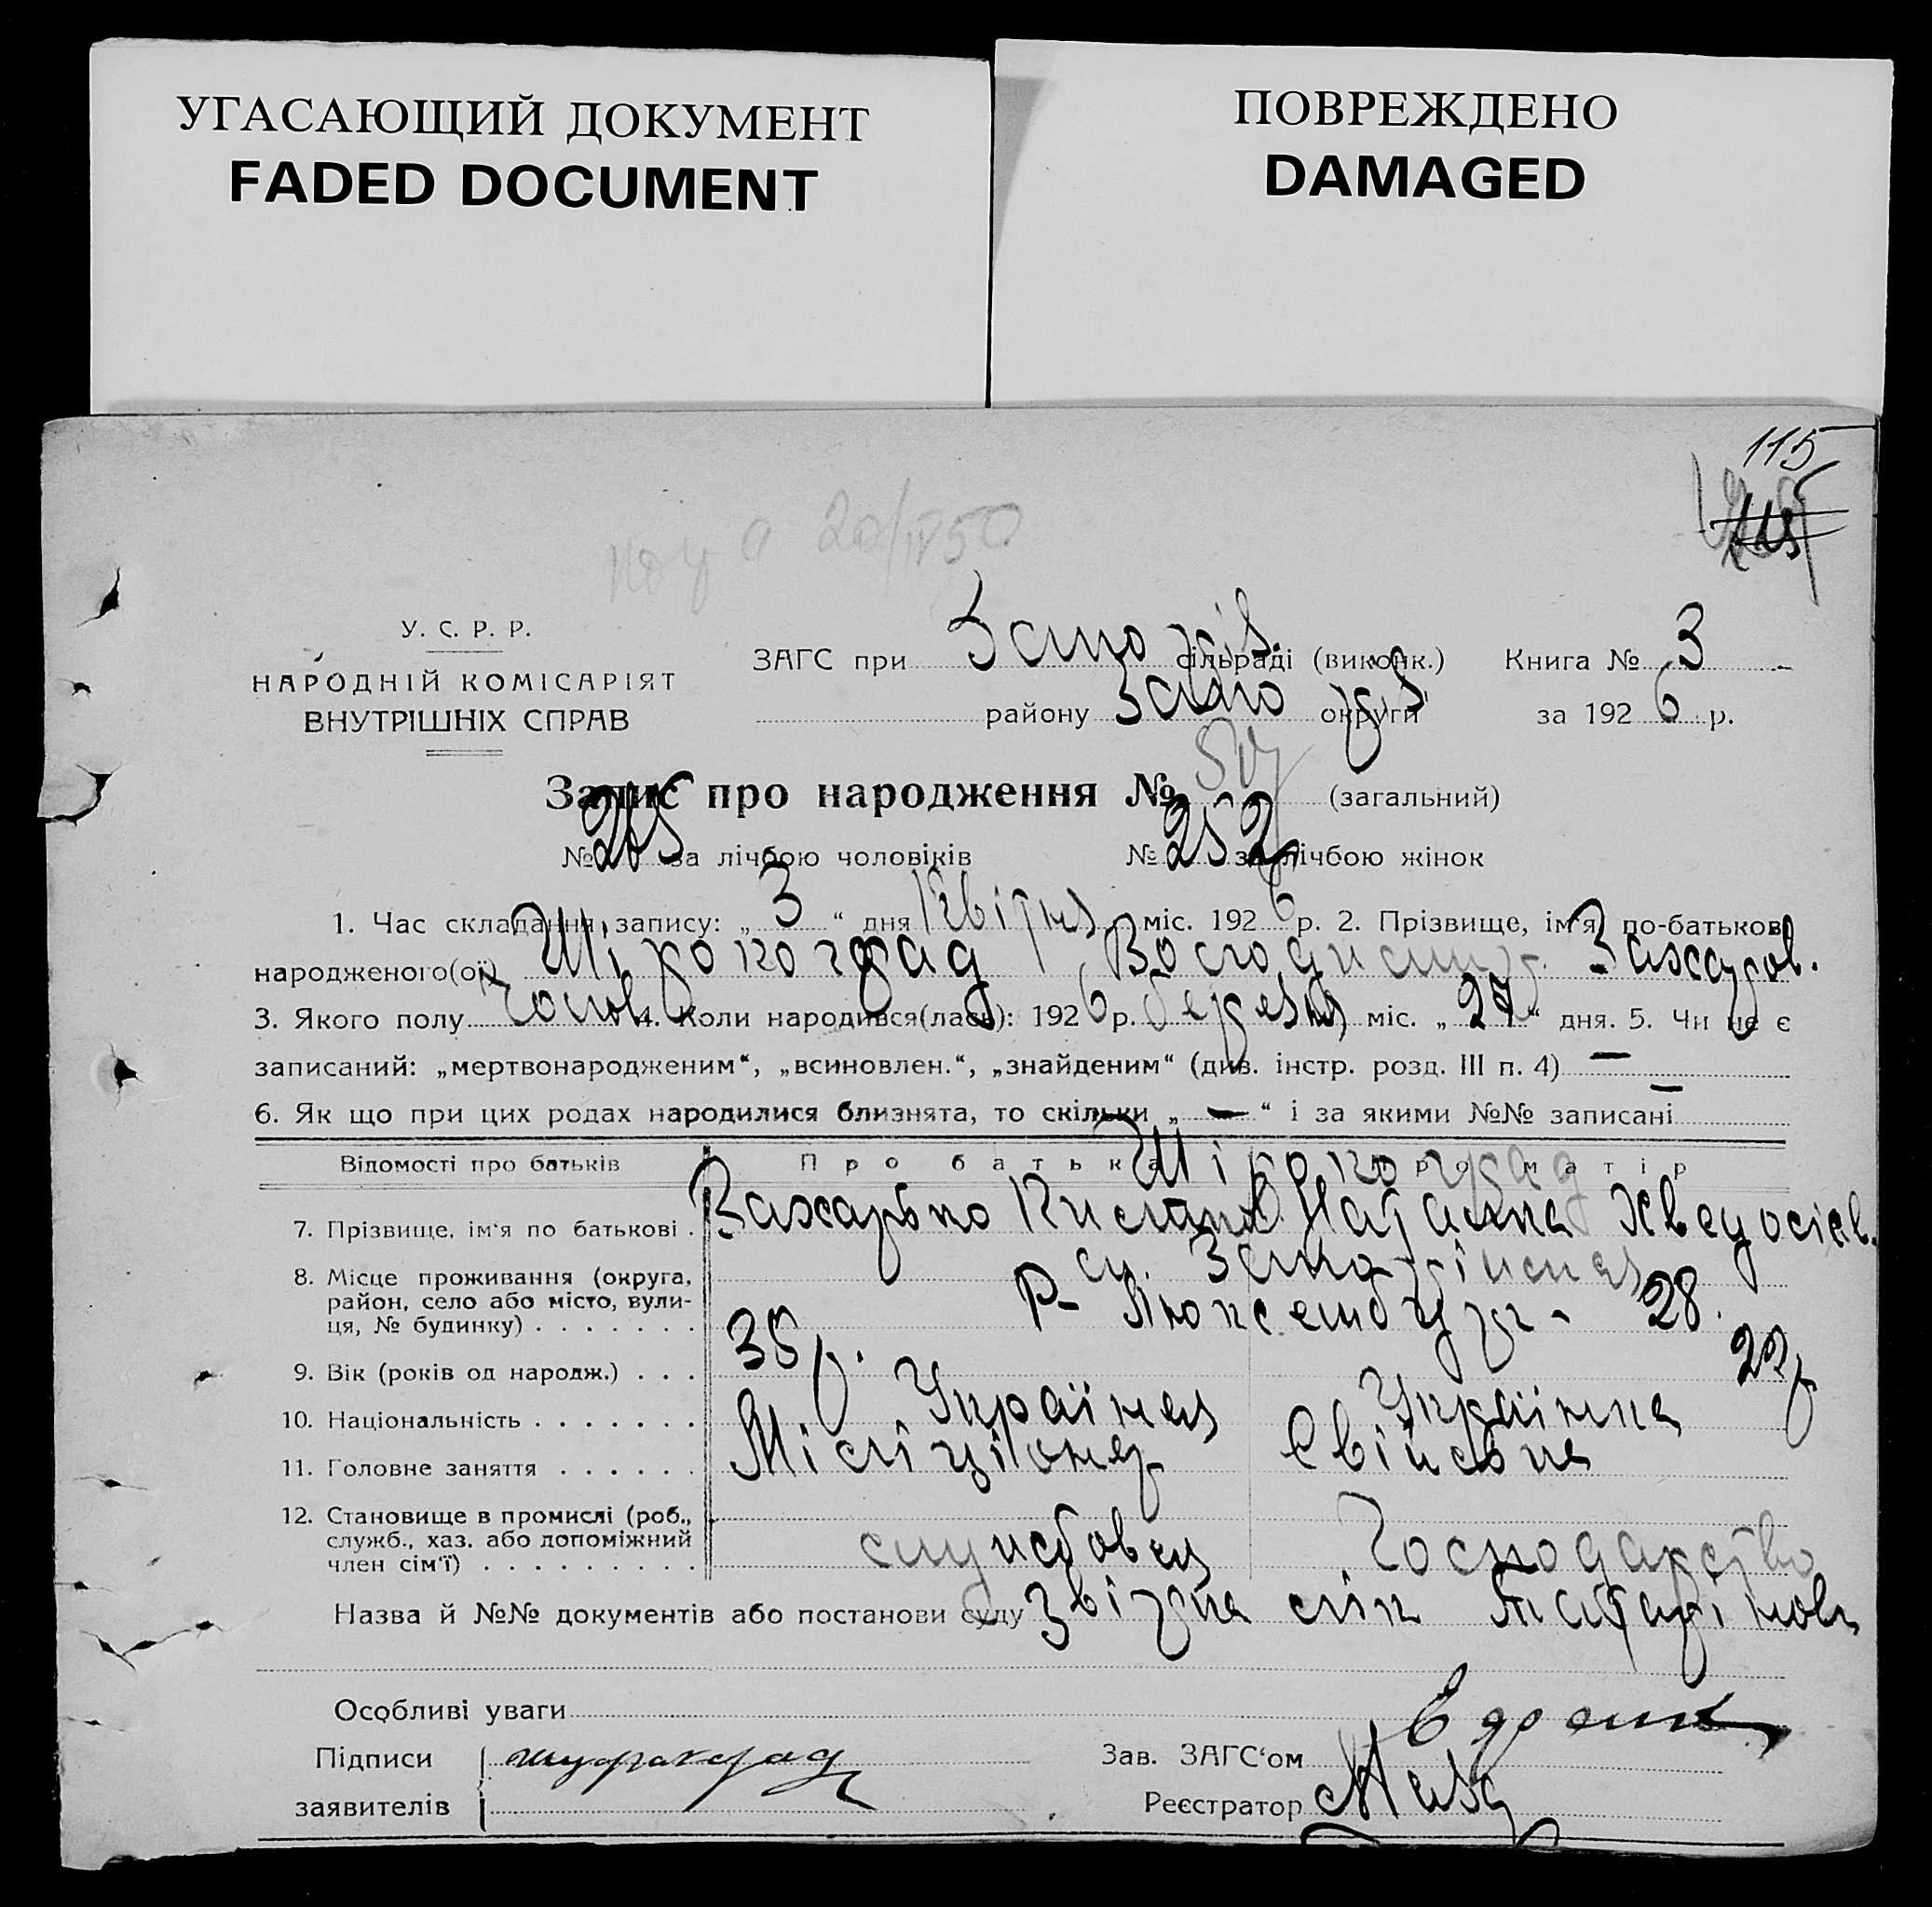 УГАСАЮЩИЙ ДОКУМЕНТ
FADED DOCUMENT
ПОВРЕЖДЕНО
DAMAGED
115
20/IV 50
У. С. Р. Р.
НАРОДНІЙ КОМІСАРІЯТ
ВНУТРІШНІХ СПРАВ
ЗАГС при Запоріз. сільраді (виконк.) Книга № 3
району Запоріз округи за 1926 р.
Запис про народження № 517 (загальний)
№ 265 за лічбою чоловіків № 252 за лічбою жінок
1. Час складання запису: „3“ дня Квітня міс. 1926 р. 2. Прізвище, ім'я по-батькові
народженого(ої) Шірокоград Володимир Захаров.
3. Якого полу Чолов 4. Коли народився(лась): 1926 р. березня міс. „27“ дня. 5. Чи не є
записаний: „мертвонародженим“, „всиновлен.“, „знайденим“ (див. інстр. розд. III п. 4) —
6. Як що при цих родах народилися близнята, то скільки „—“ і за якими №№ записані —
Відомості про батьків Про батька Про матір
Шірокоград
7. Прізвище, ім'я по батькові . Захарько Наталка
8. Місце проживання (округа, район, село або місто, вулиця, № будинку) . . . . . . . Р- Люксембург - 28.
9. Вік (років од народж.) . . . 35 р. 22 р
10. Національність . . . . . . . Українец Українка
11. Головне заняття . . . . . . Міліціонер Свійська
12. Становище в промислі (роб., служб., хаз. або допоміжний член сім'ї) . . . . . . . . . службовец Господарство
Назва й №№ документів або постанови суду Звізтка лік
Особливі уваги
Підписи заявителів
Зав. ЗАГС'ом
Реєстратор